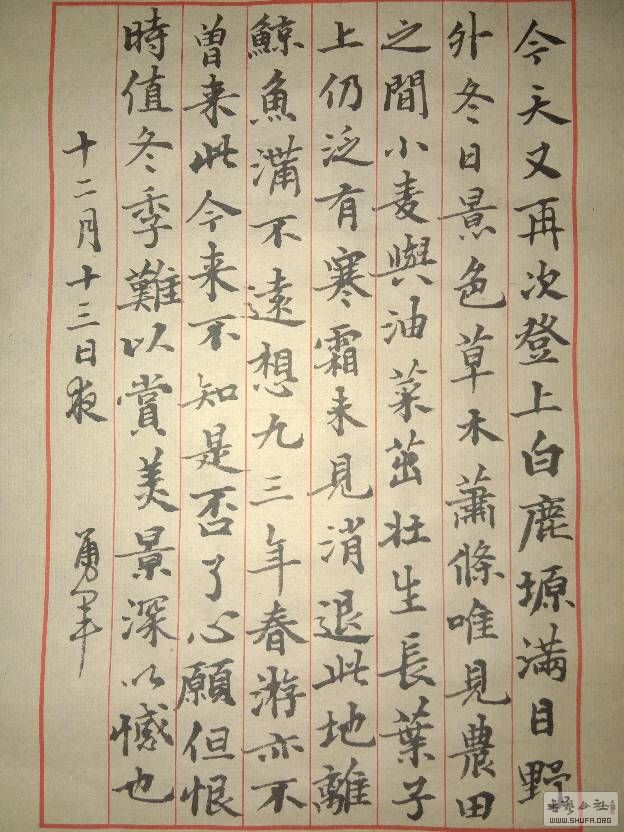 今天又再次登上白鹿塬滿目野
外冬日景色草木蕭條唯見農田
之間小麦與油菜茁壯生長葉子
上仍泛有寒霜未見消退此地離
鯨魚溝不遠想九三年春游亦不
曾来此今来不知是否了心願但恨
時值冬季難以賞美景深以憾也
十二月十三日夜
勇軍
書法公社
WWW.SHUFA.ORG